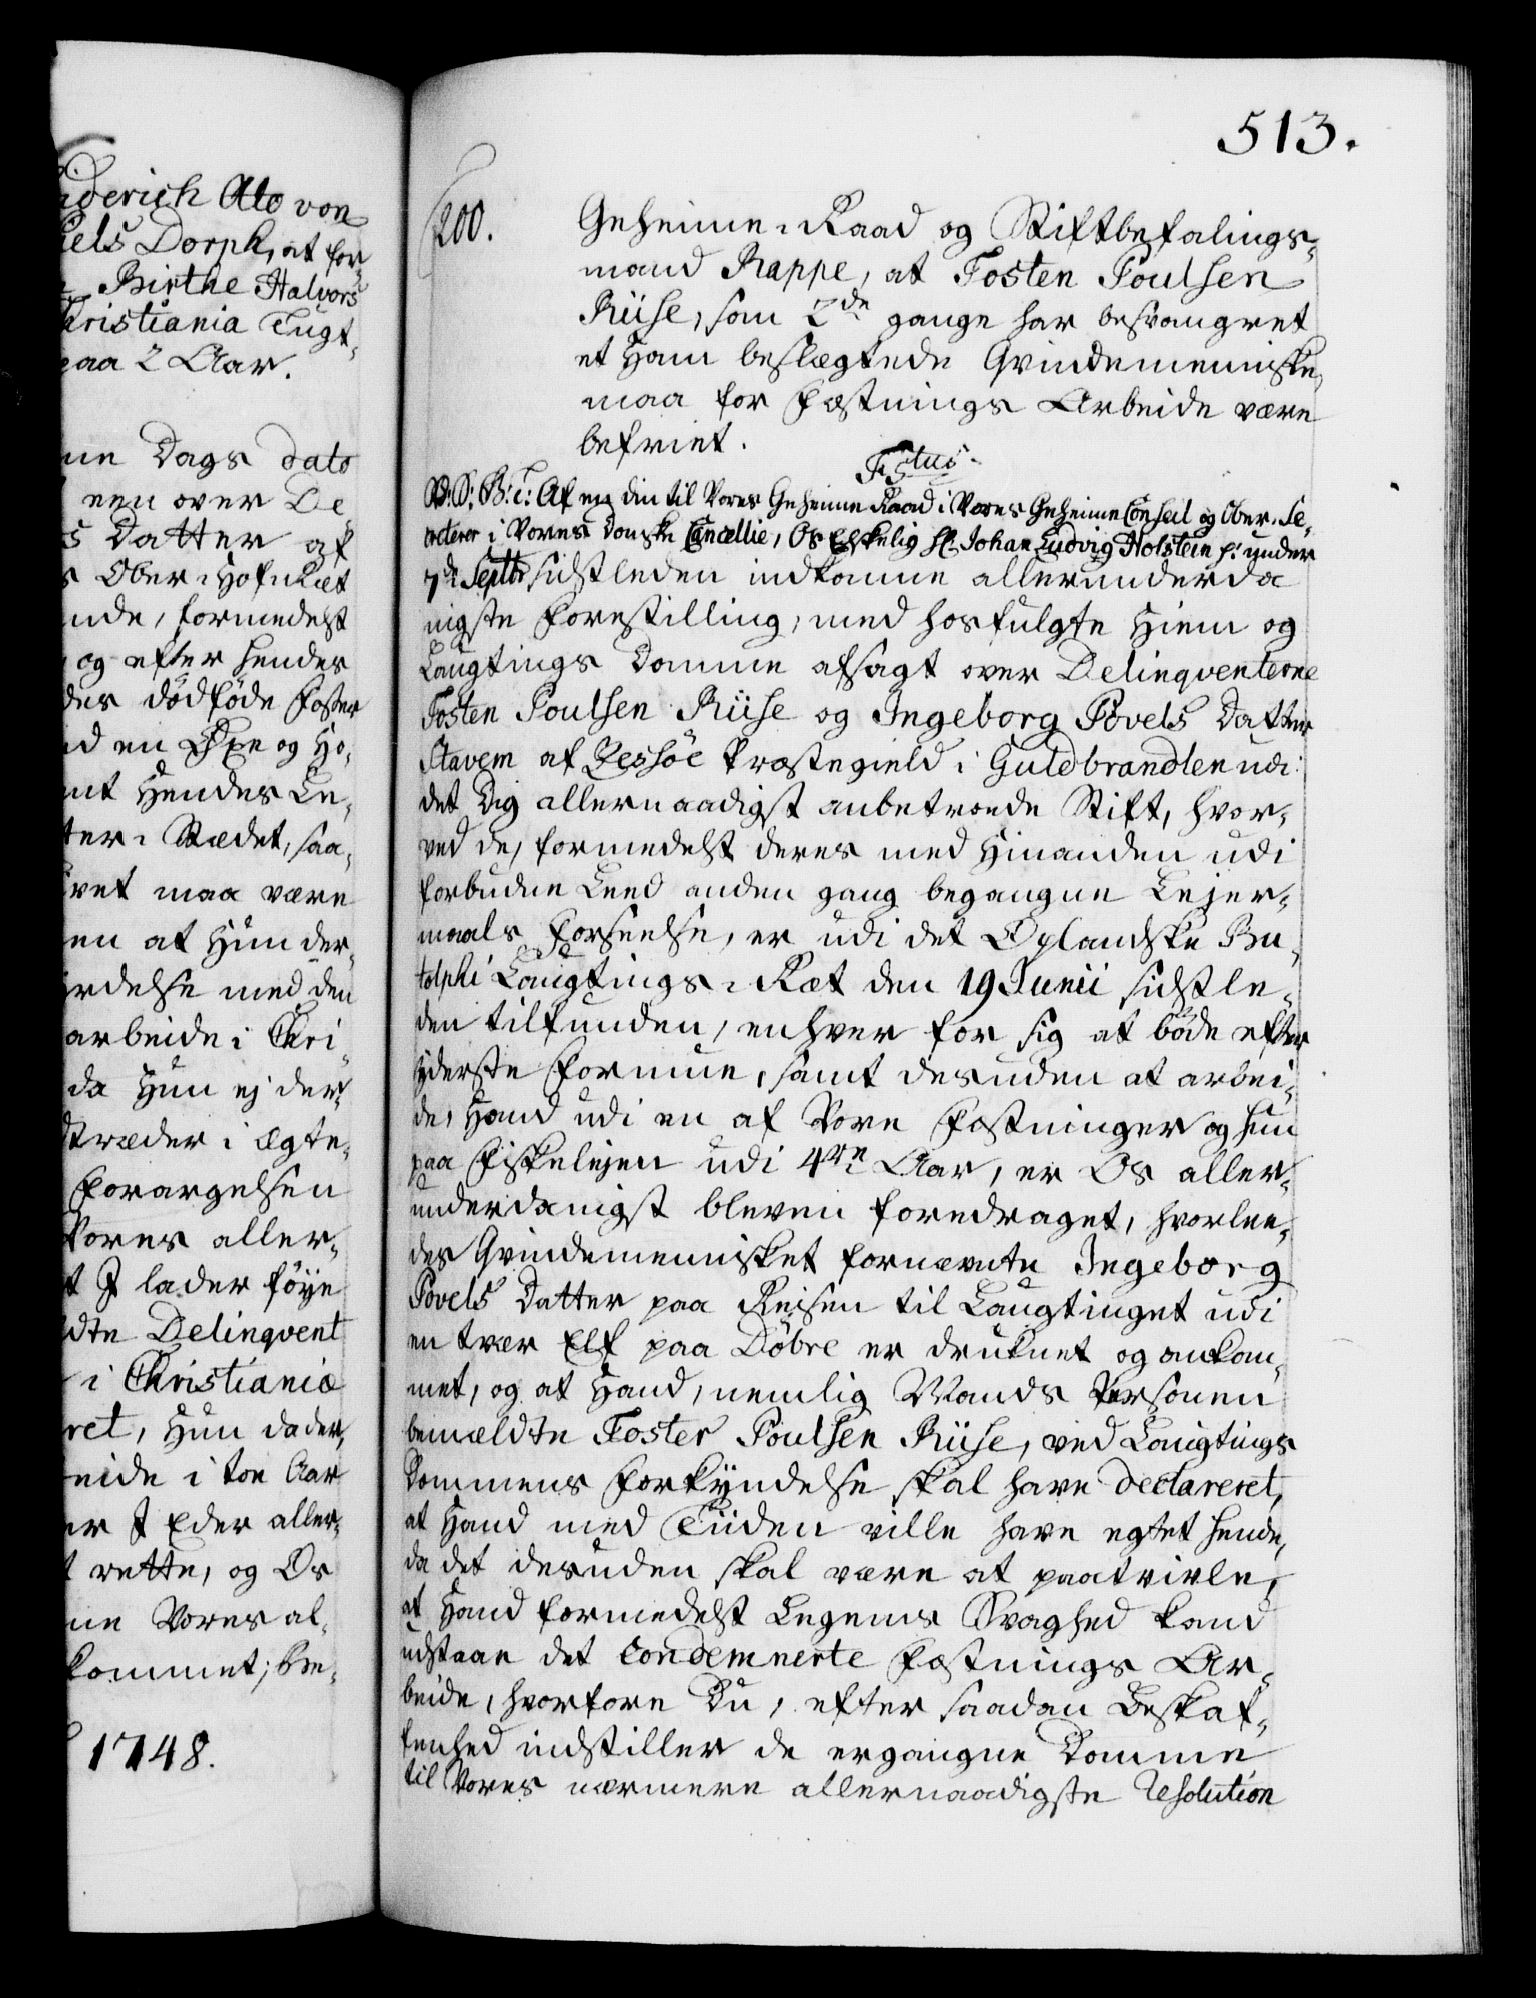 513.
iderich Otto von
iels Dorph, at for-
Birthe Halvors
Christiania Tugt-
paa 2 Aar.
ne Dags dato
een over De
s Datter af
s Ober-Hof-Ræt
ende, formedelst
og efter hendes
des dödföde Foster
ed en Öxe og Ho-
mt Hendes Le-
ter-Stædet, saa-
vet maa være
en at Hun der-
rdelse med den
arbeide i Chri-
da Hun ej der-
træder i ægte-
Forargelsen
Vores aller-
t I lader föye
dte Delinqvent
i Christiania
ret, Hun da der-
eide i toe Aar
er I Eder aller-
t rette, og Os
ne Vores al-
kommet; be-
1748.
200.
Geheime-Raad og Stiftbefalings-
mand Rappe, at Tosten Poulsen
Riise, som 2de gange har besvangret
et Ham beslægtede Qvindemenniske,
maa for Fæstnings Arbeide være
befriet.
F 5tus.
W: G: B: T: Af en din til Vores Geheime Raad i Vores Geheime Conseil og Ober-Se-
creterer i Vores Danske Cancellie, Os Elskelig Hr. Johan Ludvig Holstein p: under
7de Septbr sidstleden indkomne allerunderda
nigste Forestilling, med hosfulgte Hiem og
Laugtings Domme afsagt over Delinqventerne
Tosten Poulsen Riise og Ingeborg Povels Datter
Stavem af Lessöe Præstegield i Guldbrandlen udi
det Dig allernaadigst anbetroede Stift, hvor-
ved de, formedelst deres med Hinanden udi
forbudne Leed anden gang begangne Lejer-
maals Forseelse, er udi det Oplandske Bu-
tolphi Laugtings-Ræt den 19 Junii sidstle-
den tilfunden, enhver for sig at böde efter
yderste Formue, samt desuden at arbei-
de, Hand udi en af Vore Fæstninger og hun
paa Fiskelejen udi 4re Aar, er Os aller-
underdanigst bleven foredraget, hvorlee-
des Qvindemennisket fornævnte Ingeborg
Povels Datter paa Reisen til Laugtinget udi
en tvær Elf paa Döbre er druknet og omkom-
met, og at Hand, nemlig Mands Personen
bemældte Toster Poulsen Riise, ved Laugtings
Dommens Forkyndelse skal have declareret,
at Hand med Tiiden ville have egtet hende,
da det desuden skal være at paatvivle,
at Hand formedelst Legems Svaghed kand
udstaae det Condemnerte Fæstnings Ar-
beide, hvorfore Du, efter saadan Beskaf-
fenhed indstiller de ergangne Domme
til Vores nærmere allernaadigste Resolution